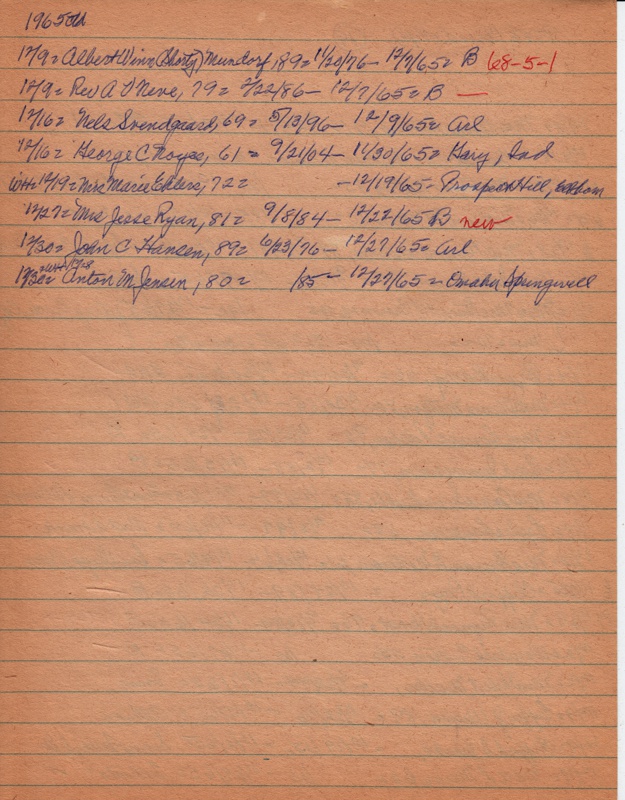 1965
12/9= Albert Winz (Shorty) Mundorf, 89= 11/20/76- 12/7/65= B 68-5-1
12/9= Rev A V Neve, 79= 2/22/86- 12/7/65= B —
12/16= Nels Svendgaard, 69= 5/13/96- 12/9/65= Arl
12/16= George C Noyes, 61= 9/21/04- 11/30/65= Gary, Ind
WH= 12/19= Mrs Marie Ehlers, 72= -12/19/65- Prospect Hill,
12/27= Mrs Jesse Ryan, 81= 9/8/84- 12/22/65 B new
12/30= John C Hansen, 89= 6/23/76- 12/27/65= Arl
12/28
12/30= Anton M Jensen, 80= /85- 12/27/65= Omaha Springwell